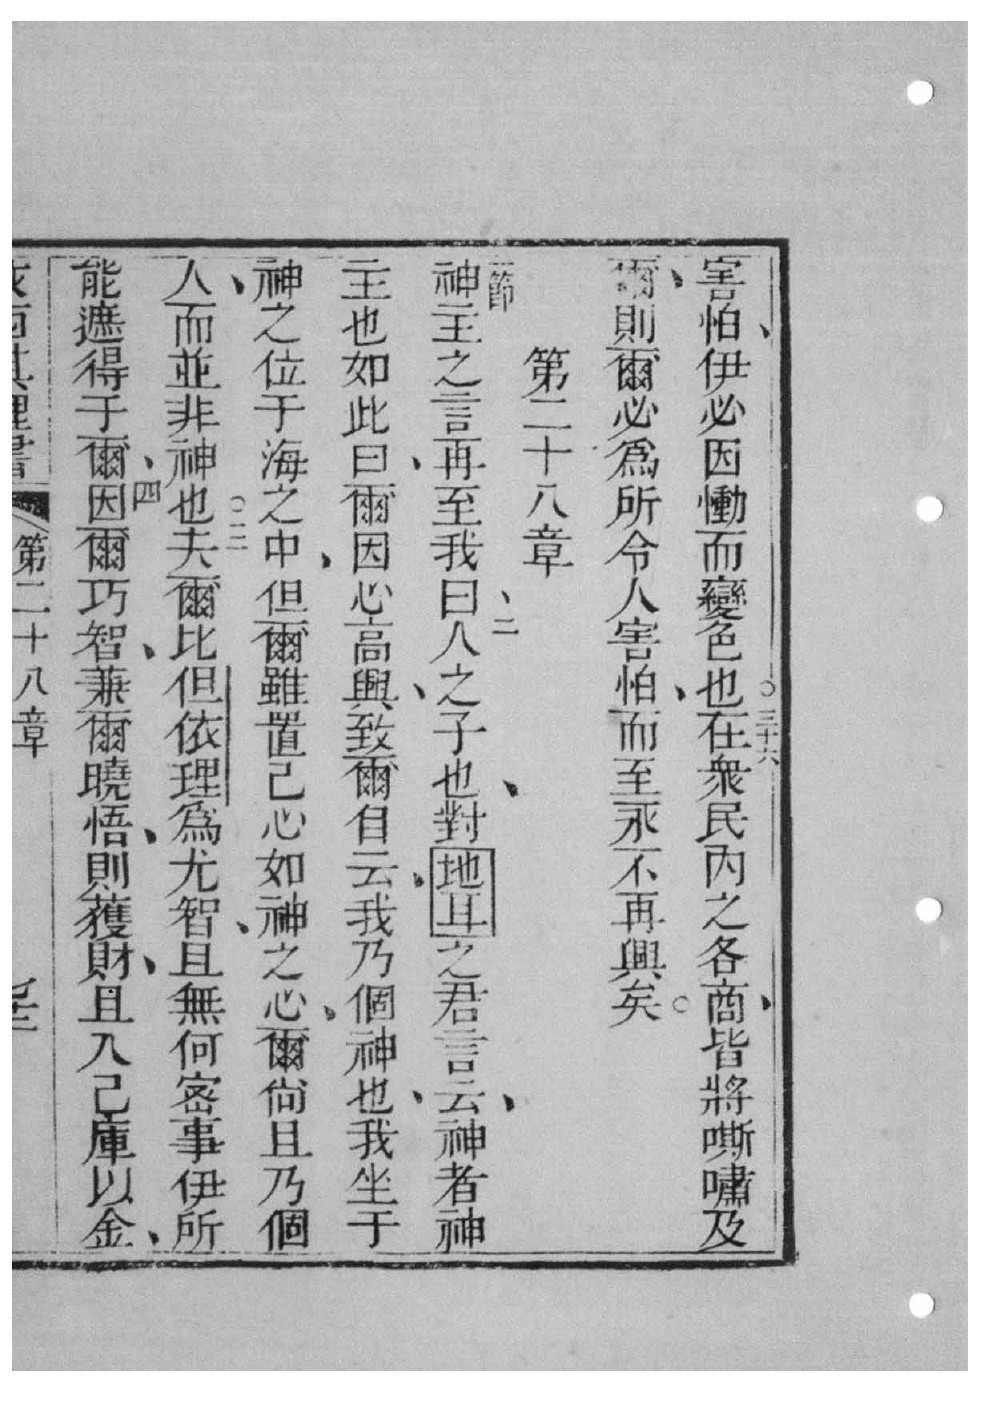 害怕、伊必因慟而變色也○三十六在衆民內之各商、皆將嘶嘯及
爾、則爾必爲所令人害怕、而至永不再興矣○
第二十八章
一節神主之言再至我曰、二人之子也、對地耳之君言云、神者神
主也如此曰、爾因心高興、致爾自云、我乃個神也、我坐于
神之位于海之中、但爾雖置己心如神之心、爾尙且乃個
人、而並非神也○三夫爾比但依理爲尤智、且無何密事伊所
能遮得于爾、四因爾巧智、兼爾曉悟、則獲財、且入己庫以金、
依西其理書 第二十八章